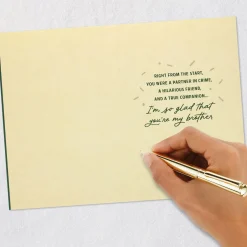 RIGHT FROM THE START,
YOU WERE A PARTNER IN CRIME,
A HILARIOUS FRIEND,
AND A TRUE COMPANION...
I'm so glad that
you're my brother